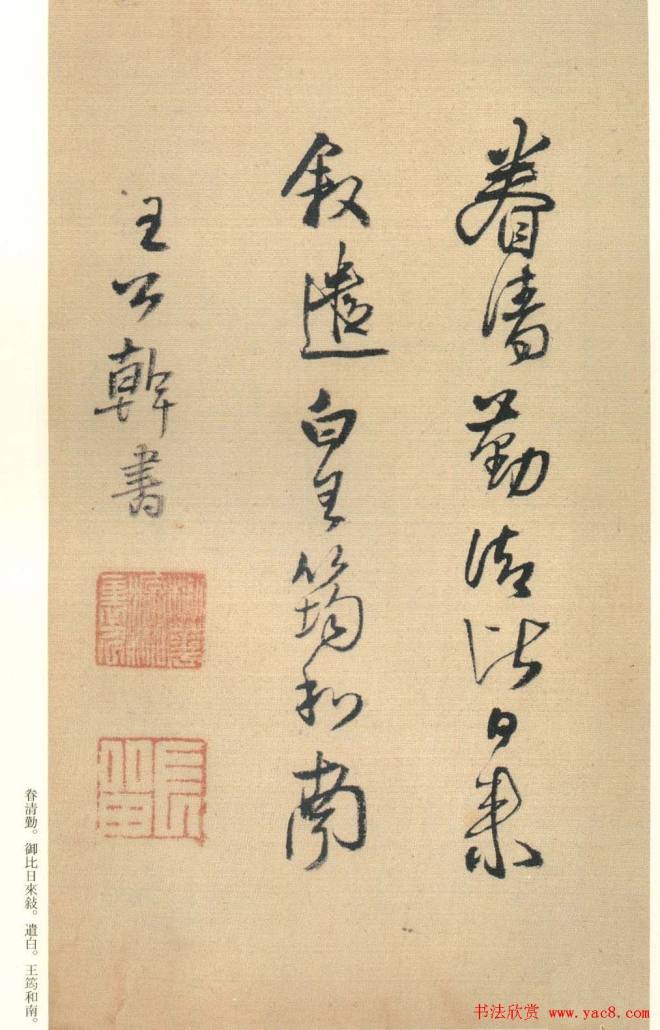 眷清勤俙比日來
敘遣白王筠和南
王公幹書
眷清勤。御比日來敍。遣白。王筠和南。
书法欣赏 www.yac8.com